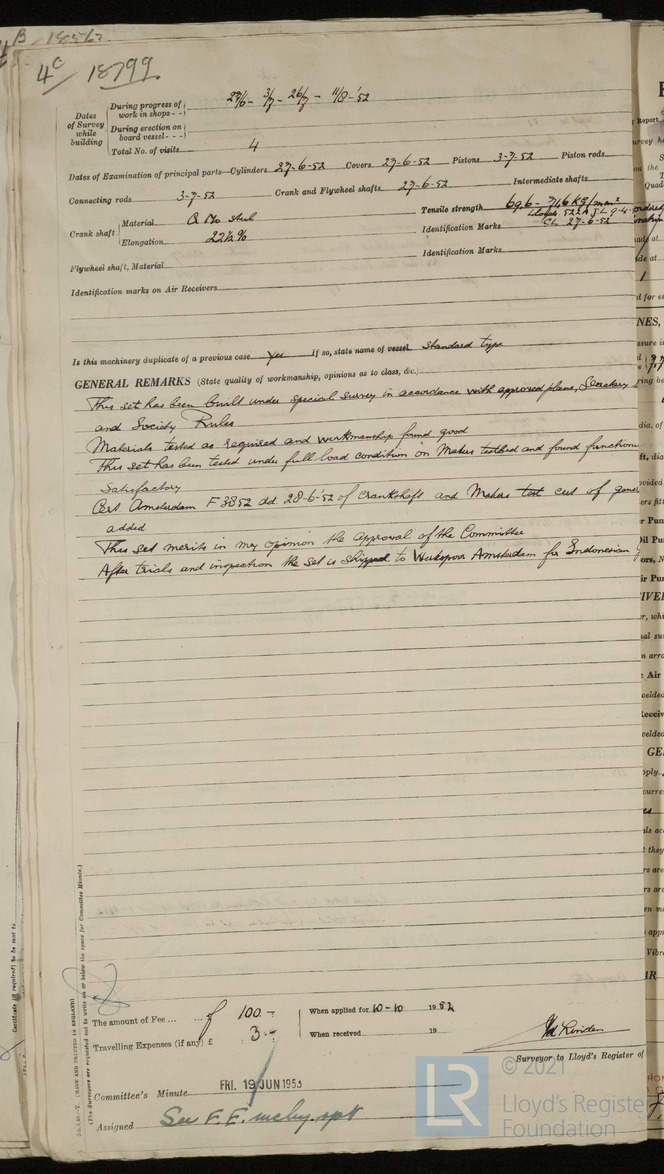 B 18567
4c/ 18799
Dates of Survey while building
During progress of work in shops - - 27/6 - 3/7 - 26/7 - 11/8 -'52
During erection on board vessel - - -
Total No. of visits 4
Dates of Examination of principal parts—Cylinders 27-6-52 Covers 27-6-52 Pistons 3-7-52 Piston rods
Connecting rods 3-7-52 Crank and Flywheel shafts 27-6-52 Intermediate shafts
Crank shaft Material steel Tensile strength 69,6 - 71,6 Kg/mm²
Elongation 22½% Identification Marks Lloyds 522A
27-6-52
Flywheel shaft, Material Identification Marks
Identification marks on Air Receivers
Is this machinery duplicate of a previous case Yes If so, state name of vessel Standard type
GENERAL REMARKS (State quality of workmanship, opinions as to class, &c.)
This set has been built under special survey in accordance with approved plans, Secretary
and Society Rules
Materials tested as required and workmanship found good
This set has been tested under full load condition on Makers testbed and found function
Satisfactory
Cert Amsterdam F 3852 dd 28-6-'52 of crankshaft and Makers test cert of gener
added
This set merits in my opinion the approval of the Committee
After trials and inspection the set is shipped to Werkspoor Amsterdam for Indonesian
Certificate (if required) to be sent to
(MADE AND PRINTED IN ENGLAND)
(The Surveyors are requested not to write on or below the space for Committee Minute.)
The amount of Fee ... ... f 100.- When applied for 10-10 1952
Travelling Expenses (if any) £ 3.- When received 19
Surveyor to Lloyd's Register of
Committee's Minute FRI. 19 JUN 1953
Assigned See F.E. mchy. rpt
LR
© 2021
Lloyd's Register
Foundation